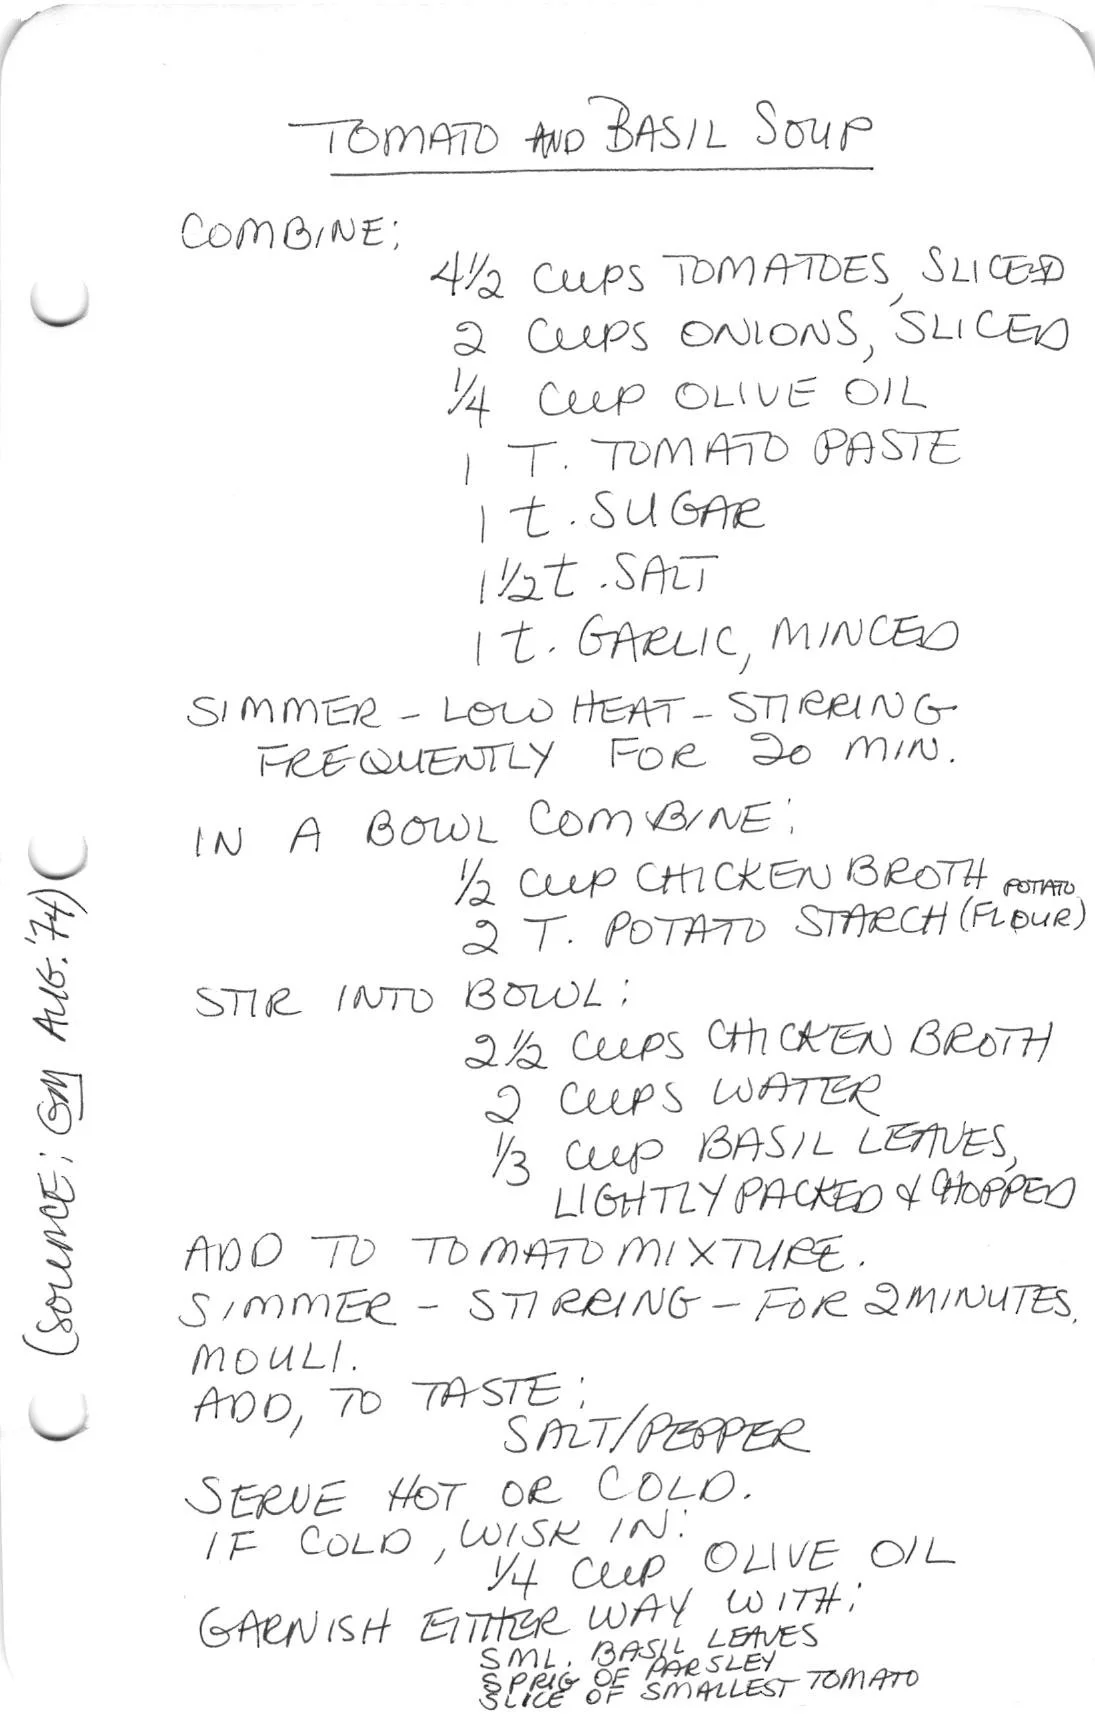 TOMATO AND BASIL SOUP
COMBINE:
4 1/2 CUPS TOMATOES, SLICED
2 CUPS ONIONS, SLICED
1/4 CUP OLIVE OIL
1 T. TOMATO PASTE
1 t. SUGAR
1 1/2 t. SALT
1 t. GARLIC, MINCED
SIMMER - LOW HEAT - STIRRING
FREQUENTLY FOR 20 MIN.
IN A BOWL COMBINE:
1/2 CUP CHICKEN BROTH
2 T. POTATO STARCH (POTATO FLOUR)
STIR INTO BOWL:
2 1/2 CUPS CHICKEN BROTH
2 CUPS WATER
1/3 CUP BASIL LEAVES,
LIGHTLY PACKED & CHOPPED
ADD TO TOMATO MIXTURE.
SIMMER - STIRRING - FOR 2 MINUTES.
MOULI.
ADD, TO TASTE:
SALT/PEPPER
SERVE HOT OR COLD.
IF COLD, WISK IN:
1/4 CUP OLIVE OIL
GARNISH EITHER WAY WITH:
SML. BASIL LEAVES
SPRIG OF PARSLEY
SLICE OF SMALLEST TOMATO
(SOURCE: GM AUG. '74)